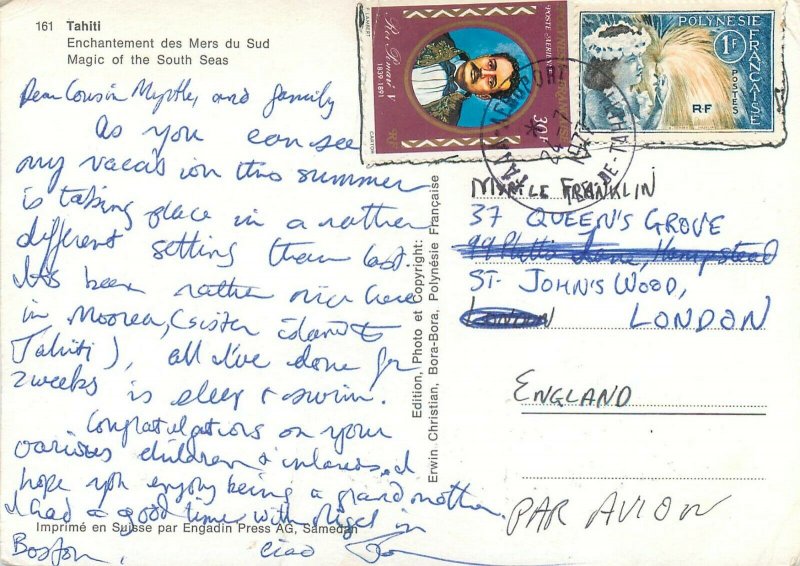 161 Tahiti
Enchantement des Mers du Sud
Magic of the South Seas
Dear Cousin Myrtle, and family
As you can see
my vacation this summer
is taking place in a rather
different setting than last.
It's been rather nice here
in Moorea, (sister island to
Tahiti), all I've done for
2 weeks is sleep & swim.
Congratulations on your
various children & inlaws, I
hope you enjoy being a grandmother.
I had a good time with Nigel in
Boston, ciao
Imprimé en Suisse par Engadin Press AG, Samedan
Edition, Photo et Copyright:
Erwin Christian, Bora-Bora, Polynésie Française
P. LAMBERT
Roi Pomaré V
1839-1891
RF
CARTOR
POSTE AERIENNE
30F
POLYNÉSIE FRANÇAISE
1F
POSTES
RF
MYRTLE FRANKLIN
37 QUEEN'S GROVE
ST. JOHN'S WOOD,
LONDON LONDON
ENGLAND
PAR AVION